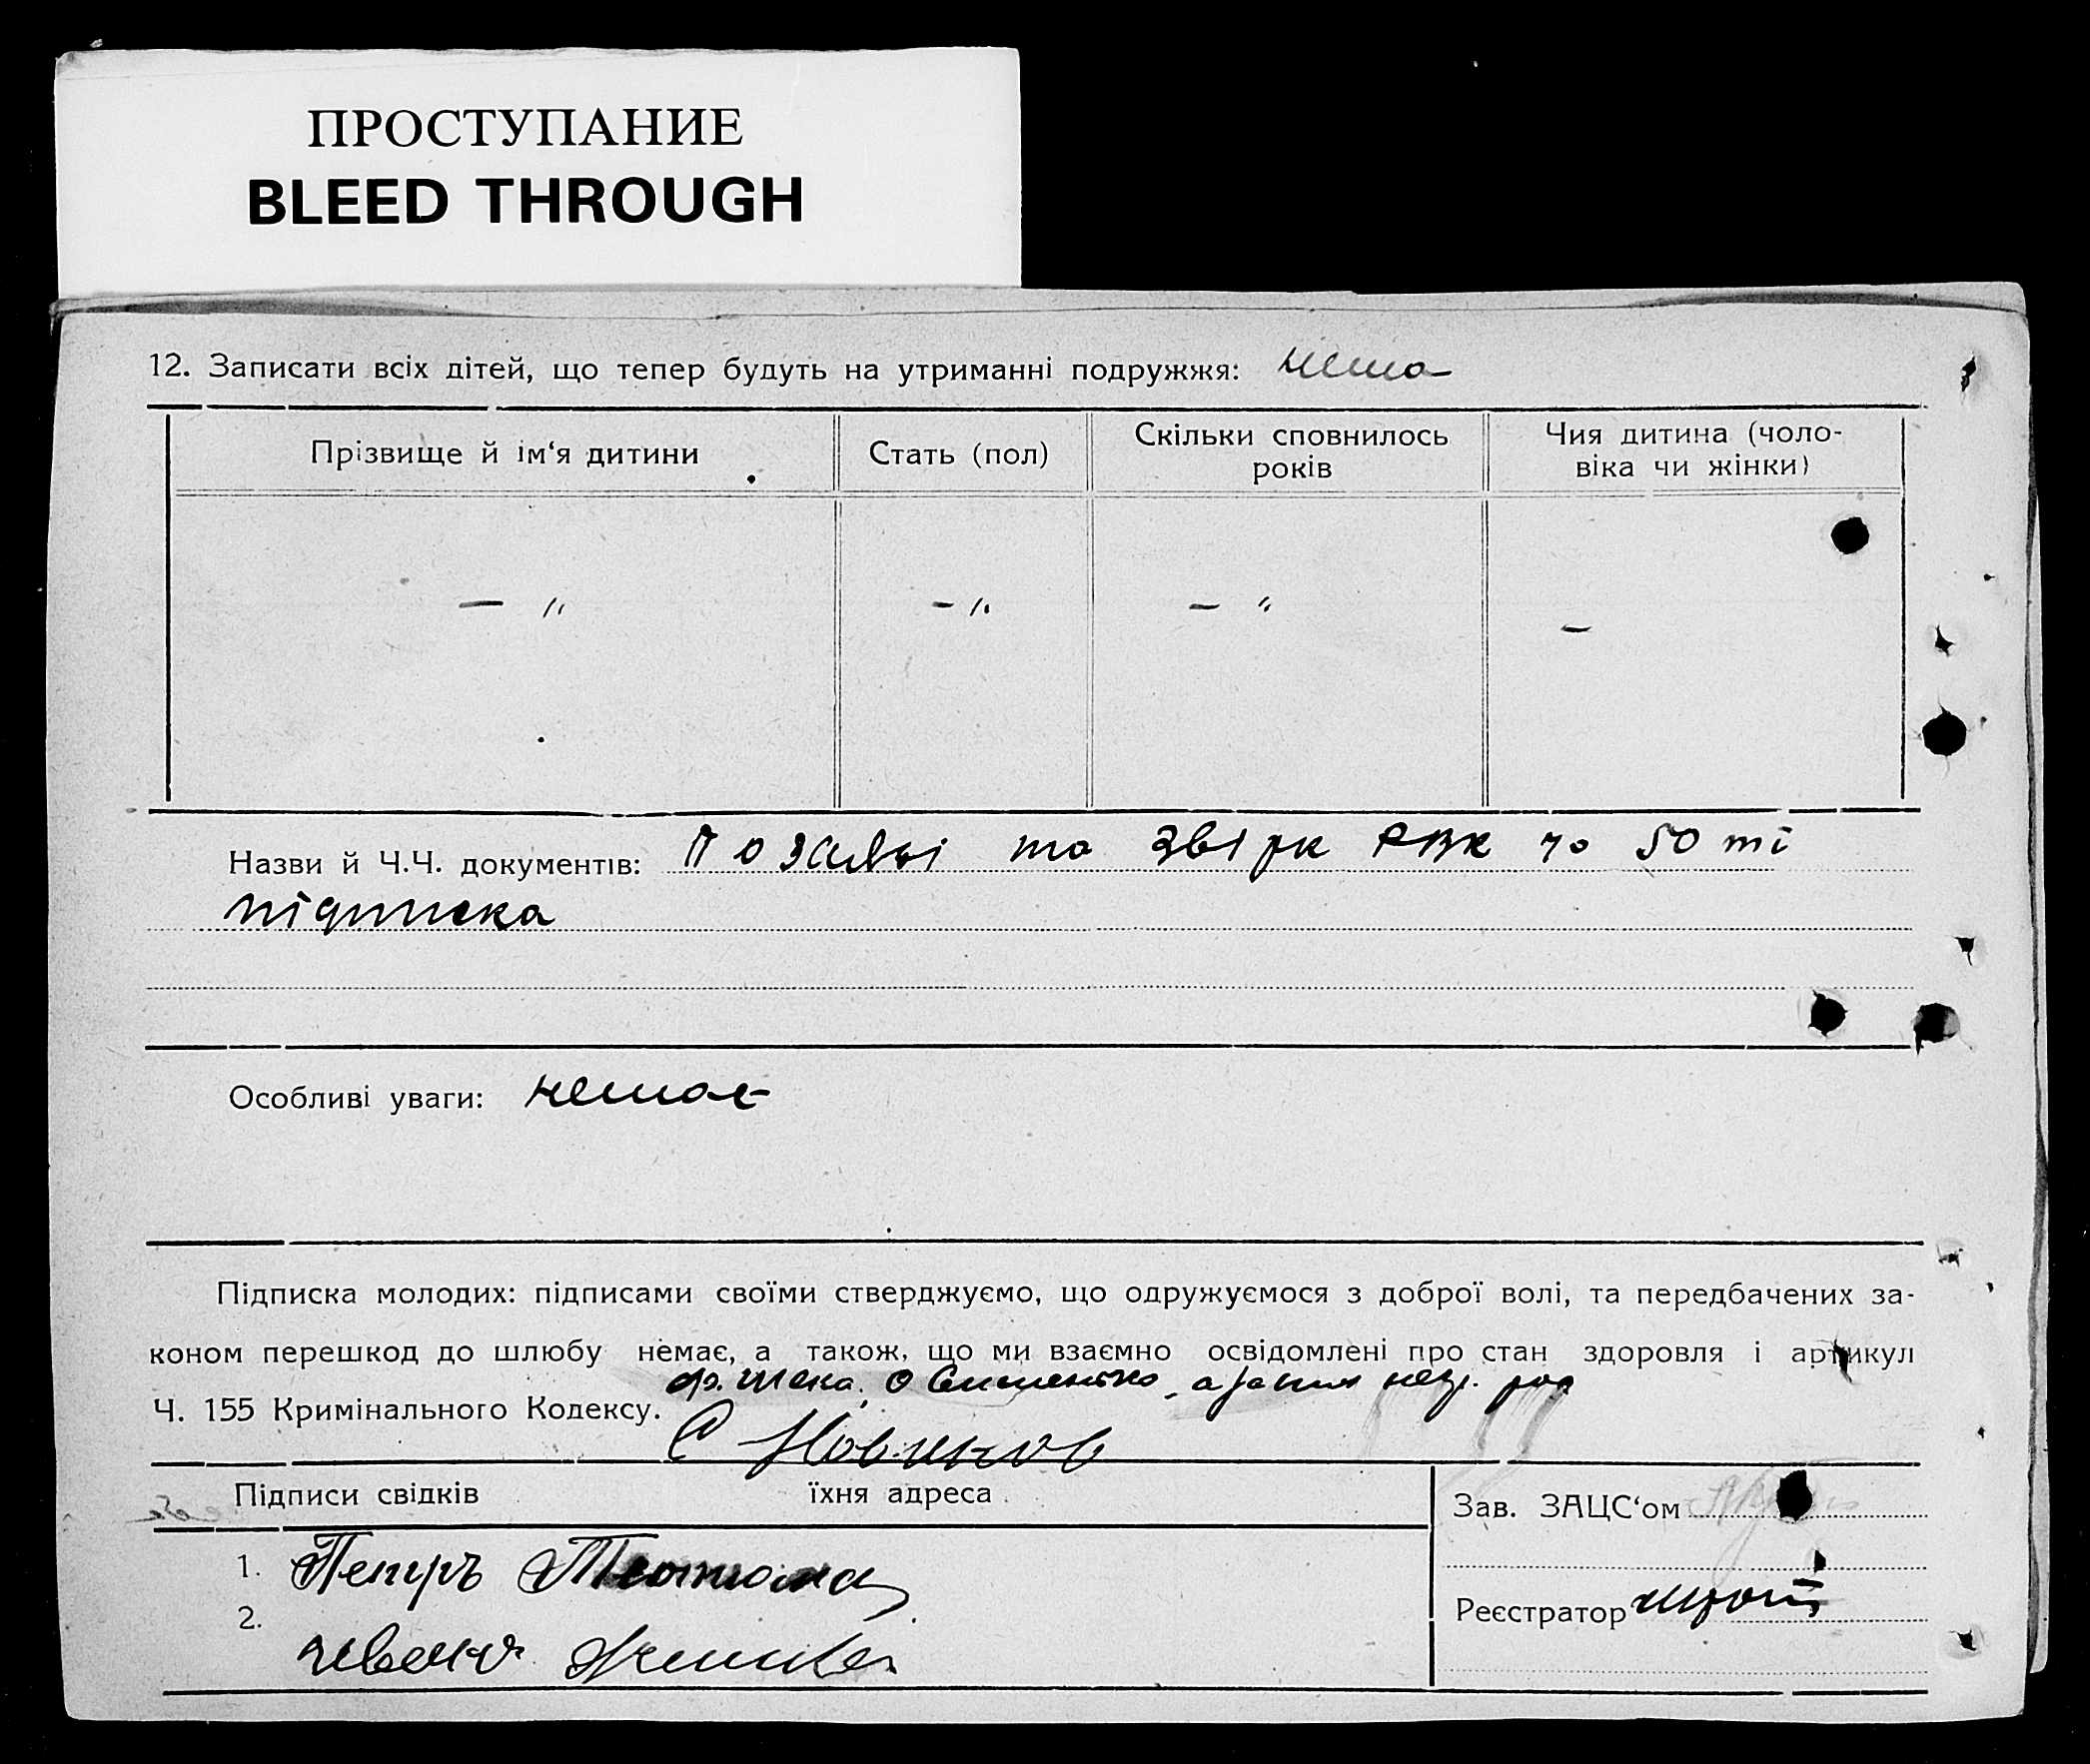 ПРОСТУПАНИЕ
BLEED THROUGH
12. Записати всіх дітей, що тепер будуть на утриманні подружжя: нема
Прізвище й ім‘я дитини
Стать (пол)
Скільки сповнилось
років
Чия дитина (чоло-
віка чи жінки)
— "
— "
— "
—
Назви й Ч.Ч. документів: По заяві та РВК 50 ті
підписка
Особливі уваги: немає
Підписка молодих: підписами своїми стверджуємо, що одружуємося з доброї волі, та передбачених за-
коном перешкод до шлюбу немає, а також, що ми взаємно освідомлені про стан здоровля і артикул
Ч. 155 Кримінального Кодексу.
С Новиков
Підписи свідків
їхня адреса
Зав. ЗАЦС‘ом
1. Петръ
Реєстратор
2.